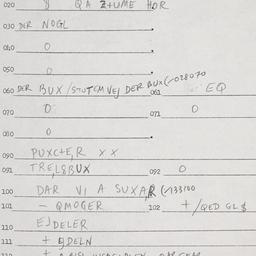 020 8 QA Z+UME HOR
030 DER NOGL
040 0
050 0
060 DER BUX/STUTCMVEJ DER BUX(-028070
061 EQ
070 0 071 0
080 0
090 PUXC+E,R XX
091 TRELSBUX 092 0
100 DAR VI A SUXA,R (-133100
101 - QMOGER 102 +/QED GL$
110 EJDELER
111 + EJDELN